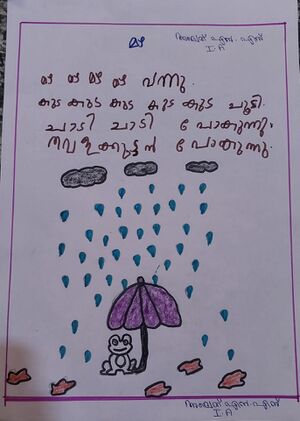 മഴ
I A
മഴ മഴ മഴ മഴ വന്നു.
കുട കുട കുട കുട കുട ചൂടി.
ചാടി ചാടി പോകുന്നു.
തവളക്കുട്ടൻ പോകുന്നു.
I A